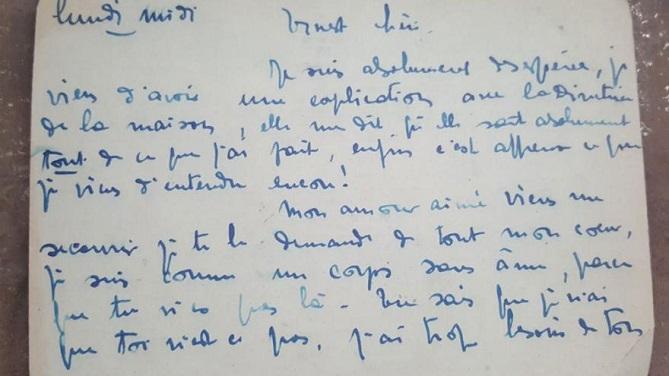 lundi midi Ernest chéri.
Je suis absolument désespérée, je
viens d'avoir une explication avec la Directrice
de la maison, elle me dit qu'elle sait absolument
tout de ce que j'ai fait, enfin c'est affreux ce que
je viens d'entendre encore!
Mon amour aimé viens me
secourir je te le demande de tout mon cœur,
je suis comme un corps sans âme, parce
que tu n'es pas là - Tu sais que je n'ai
que toi n'est ce pas, j'ai trop besoin de ton